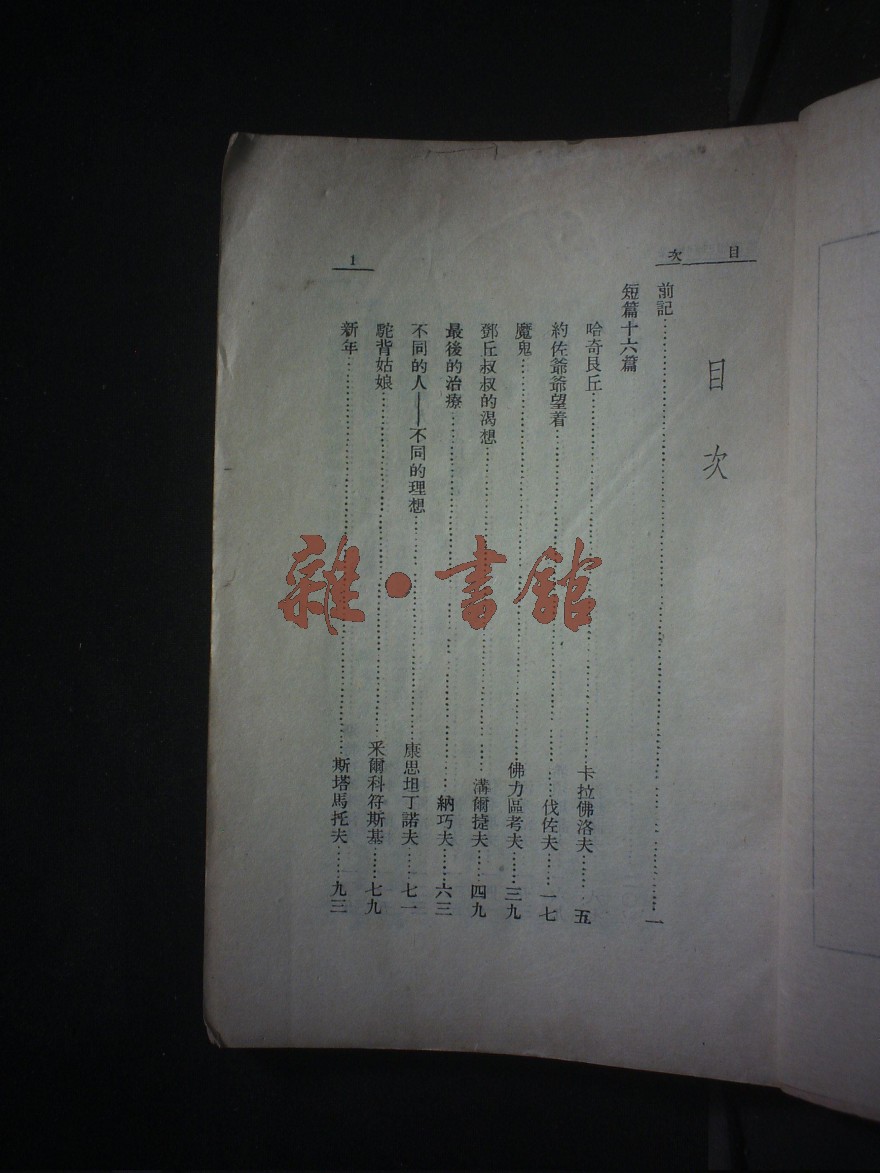 目次
1
目次
前記……一
短篇十六篇
哈奇艮丘……卡拉佛洛夫……五
約佐爺爺望着……伐佐夫……一七
魔鬼……佛力區考夫……三九
鄧丘叔叔的渴想……溝爾捷夫……四九
最後的治療……納巧夫……六三
不同的人——不同的理想……康思坦丁諾夫……七一
駝背姑娘……米爾科符斯基……七九
新年……斯塔馬托夫……九三
雜·書館